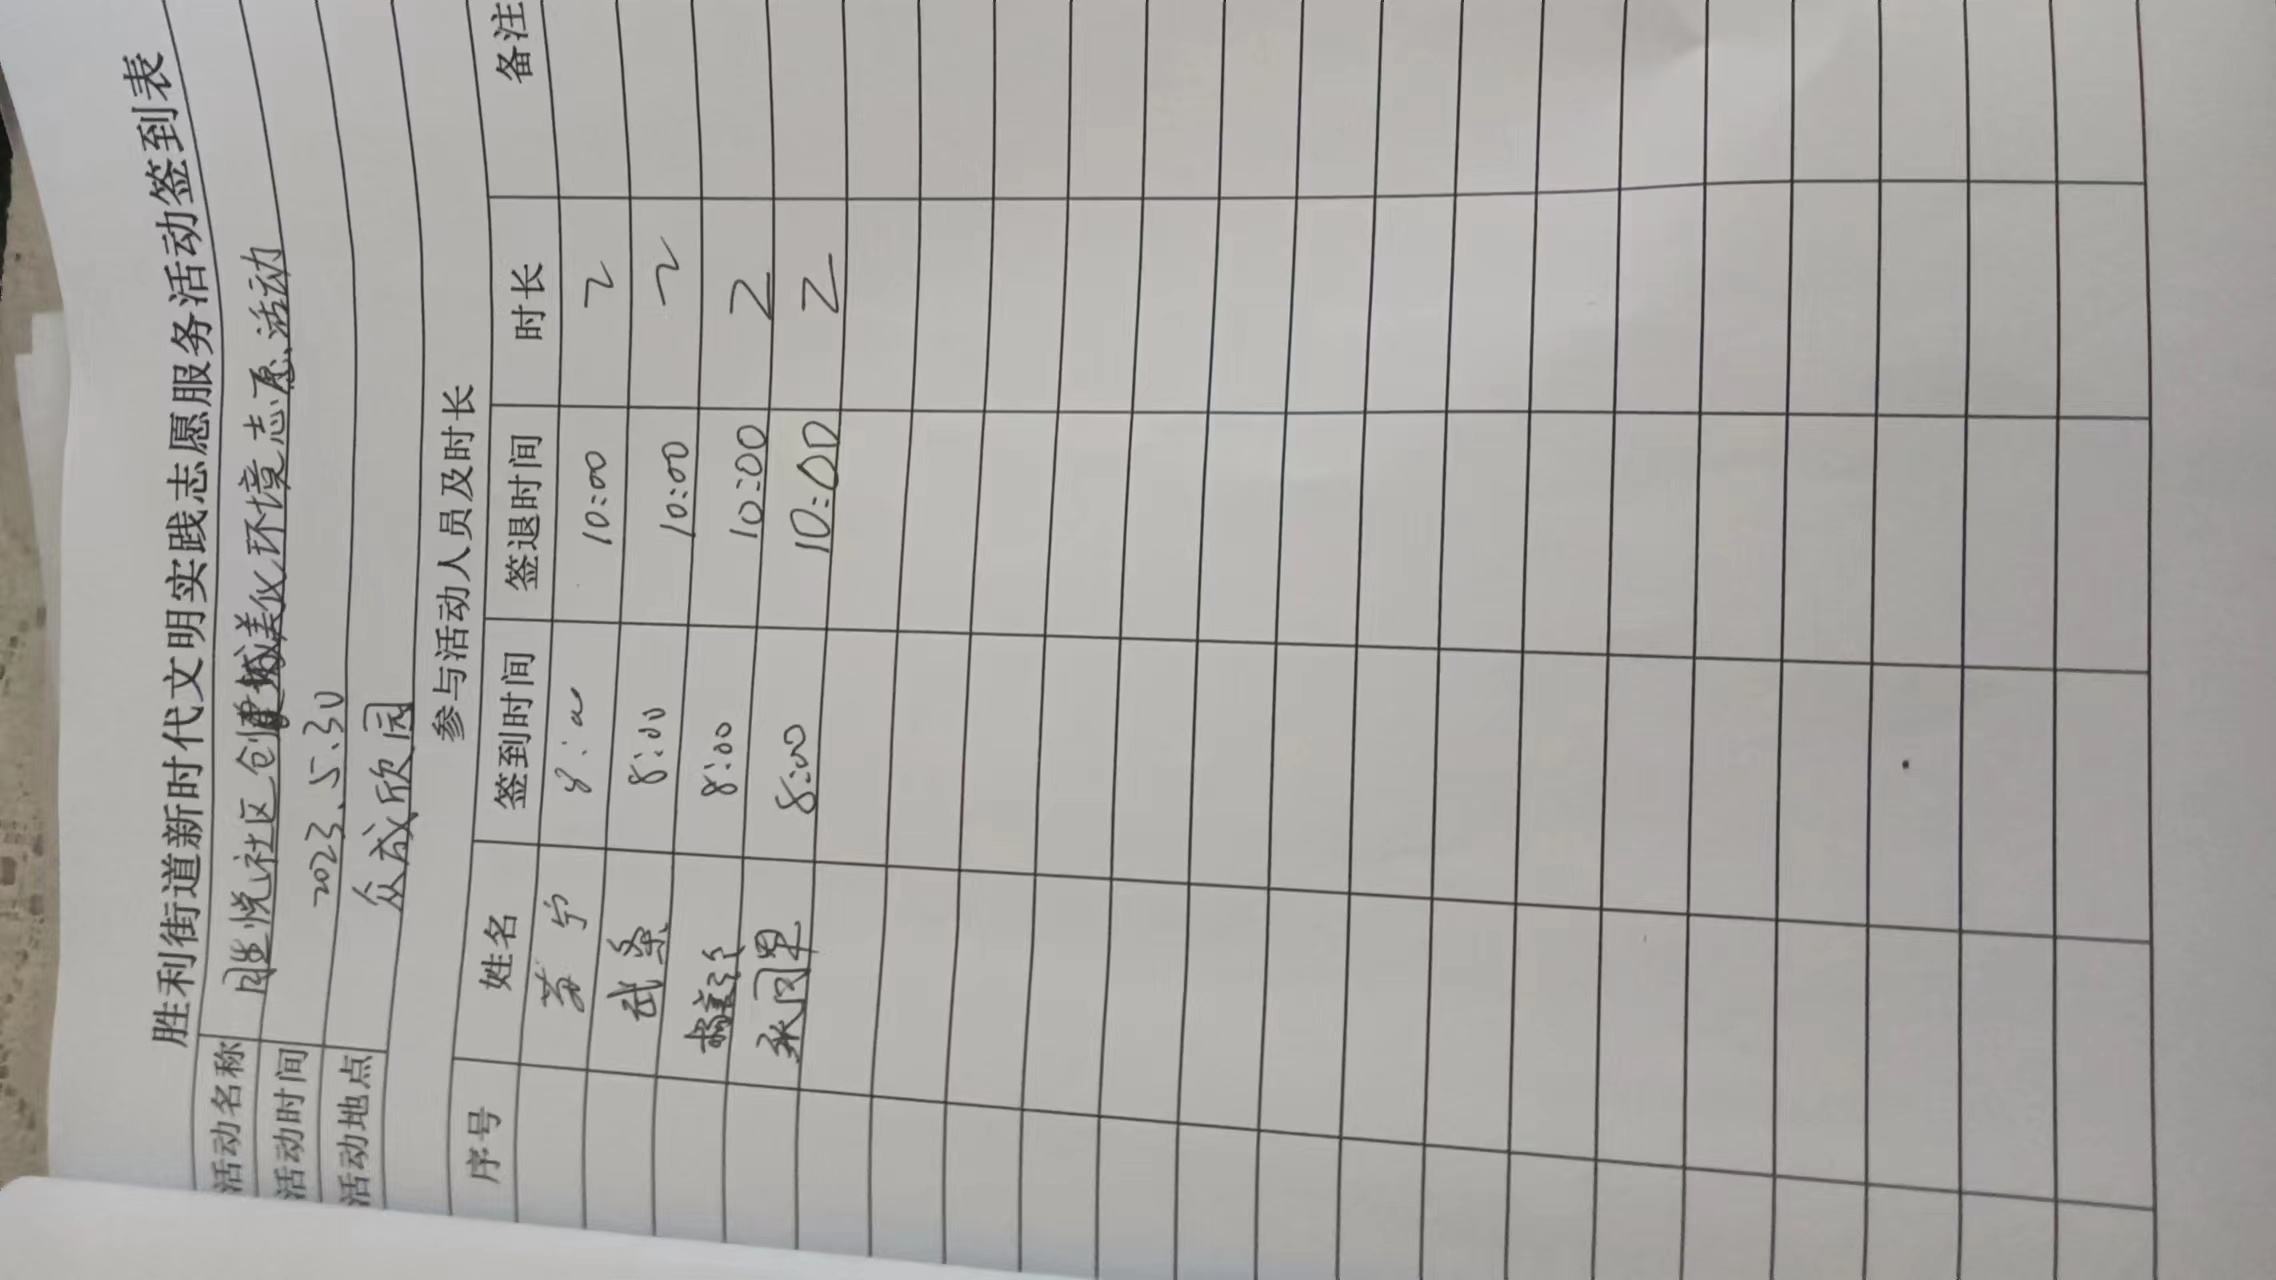 胜利街道新时代文明实践志愿服务活动签到表
活动名称 悦社区创建城美化环境志愿活动
活动时间 2023.5.30
活动地点 众成欣园
参与活动人员及时长
序号 姓名 签到时间 签退时间 时长 备注
苏宁 8:00 10:00 2
武桑 8:00 10:00 2
8:00 10:00 2
8:00 10:00 2